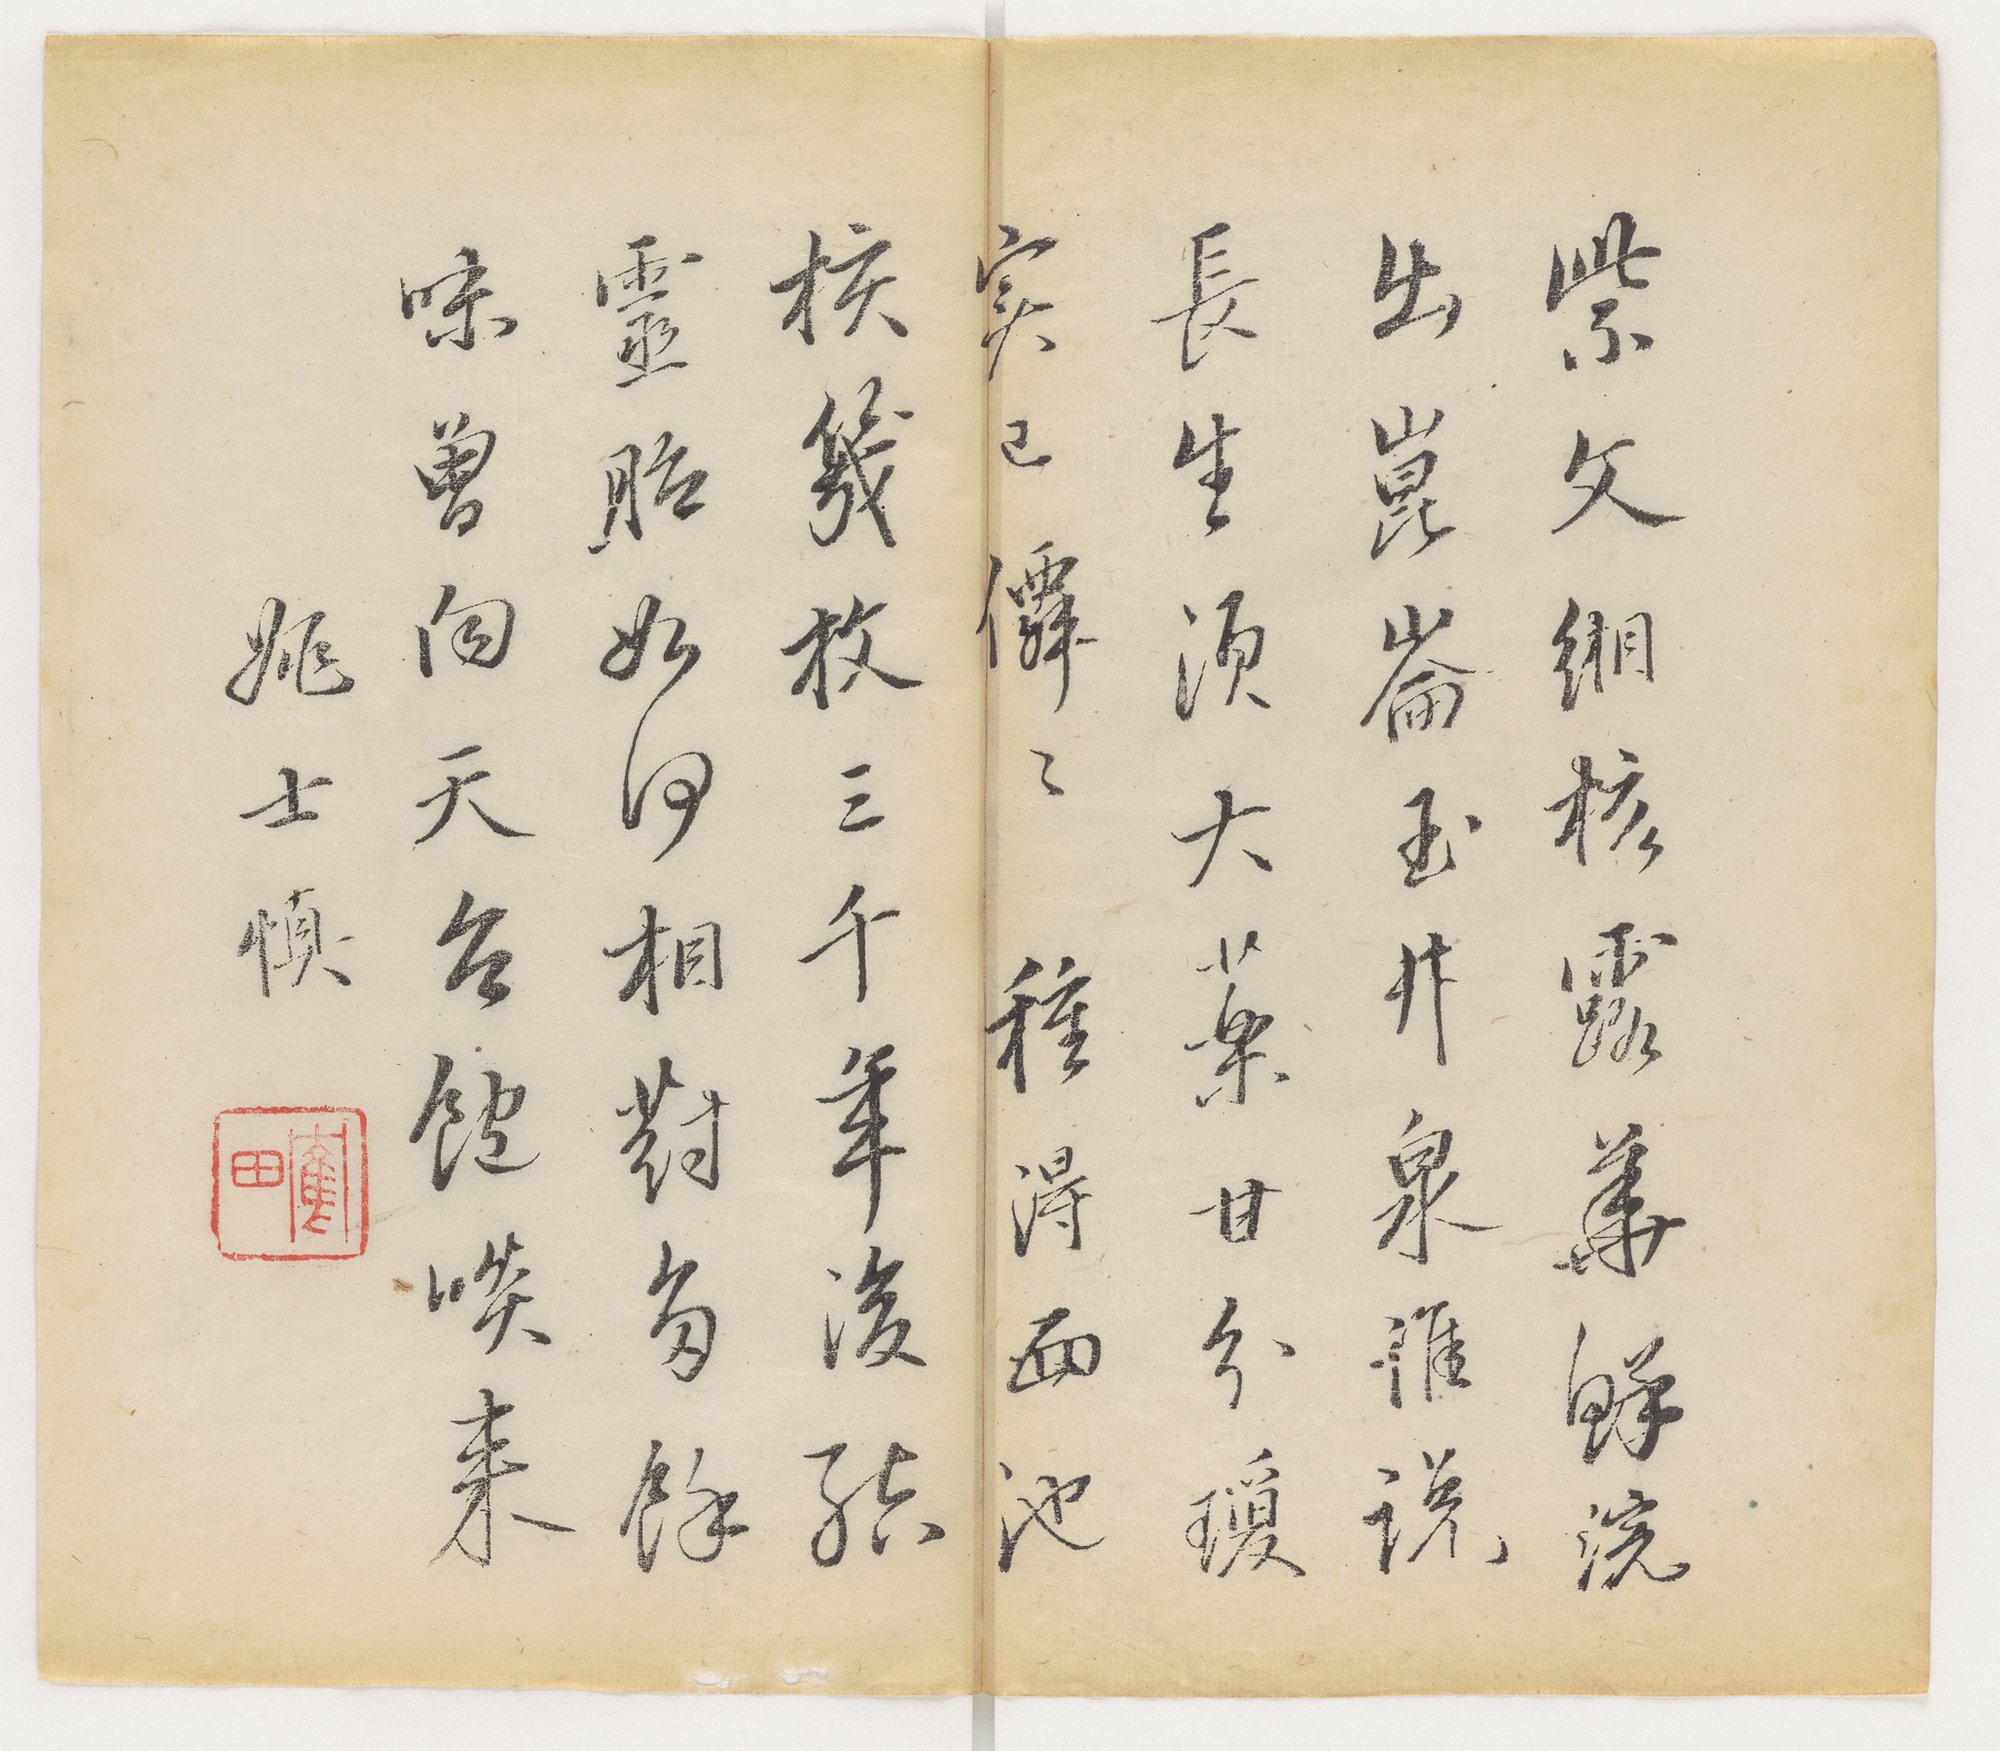 紫文緗核露華鮮浣
出崑崙玉井泉誰說
長生須大藥甘分瓊
实已僊〻 種得西池
核幾枚三千年後結
靈胎如何相對多餘
味曾向天台飽啖来
姚士慎
奮田